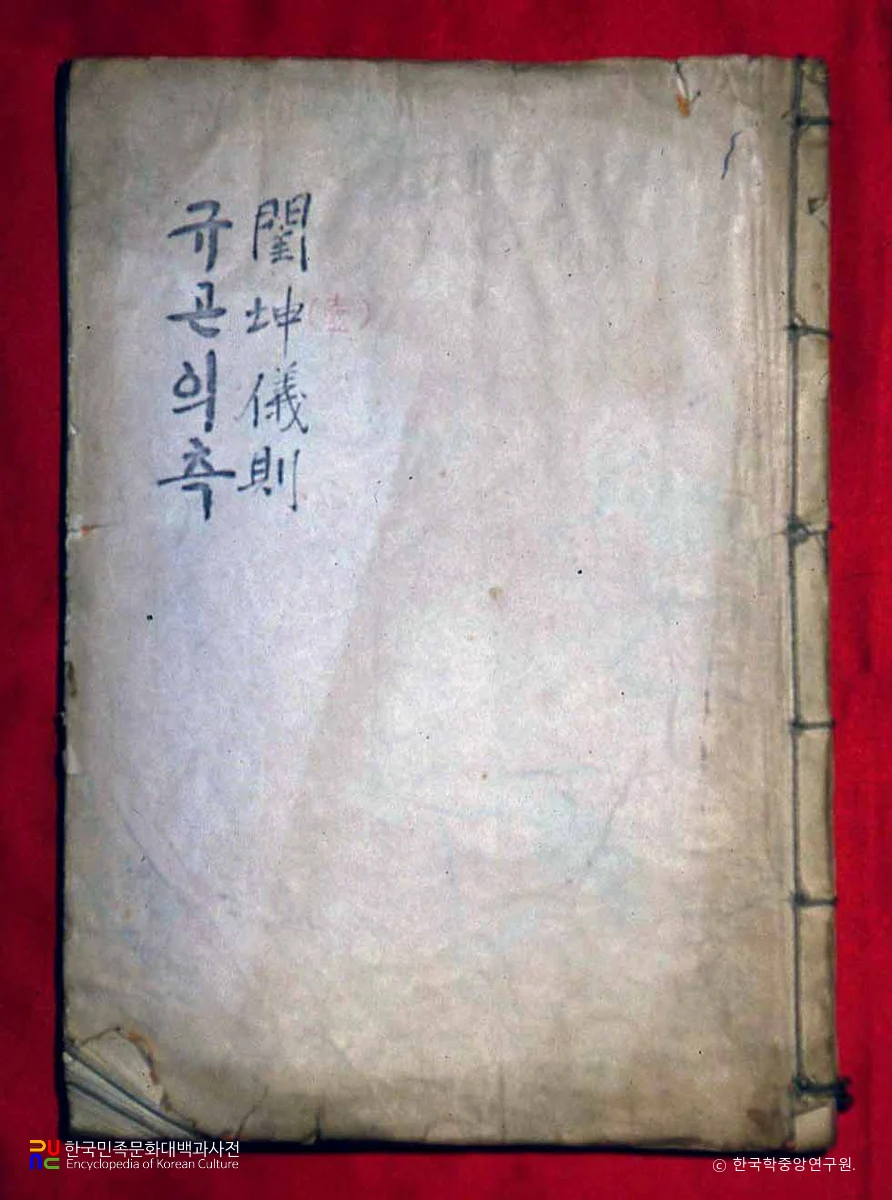 閨坤儀則
규곤의측
한국민족문화대백과사전
Encyclopedia of Korean Culture
© 한국학중앙연구원.